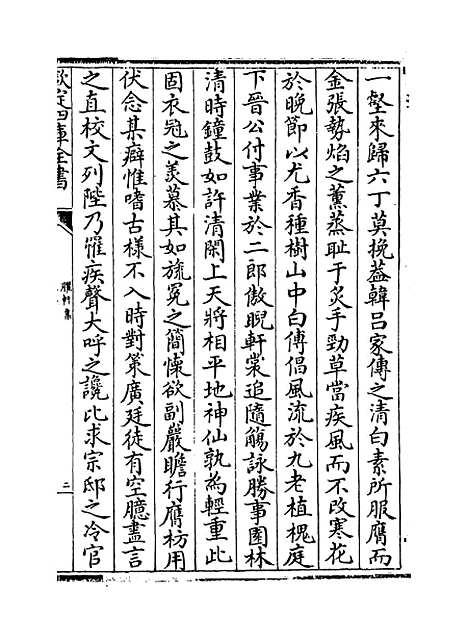 一壑來歸六丁莫挽葢韓呂家傳之清白素所服膺而
金張勢焰之薰蒸耻于炙手勁草當疾風而不改寒花
於晚節以尤香種樹山中白傅倡風流於九老植槐庭
下晉公付事業於二郎傲睨軒裳追隨觴詠勝事園林
清時鐘鼓如許清閑上天將相平地神仙孰為輕重此
固衣冠之羡慕其如旒冕之簡懐欲副嚴瞻行膺枋用
伏念某癖惟嗜古樣不入時對策廣廷徒有空臆盡言
之直校文列陛乃罹疾聲大呼之讒比求宗邸之冷官
欽定四庫全書
臞軒集
二